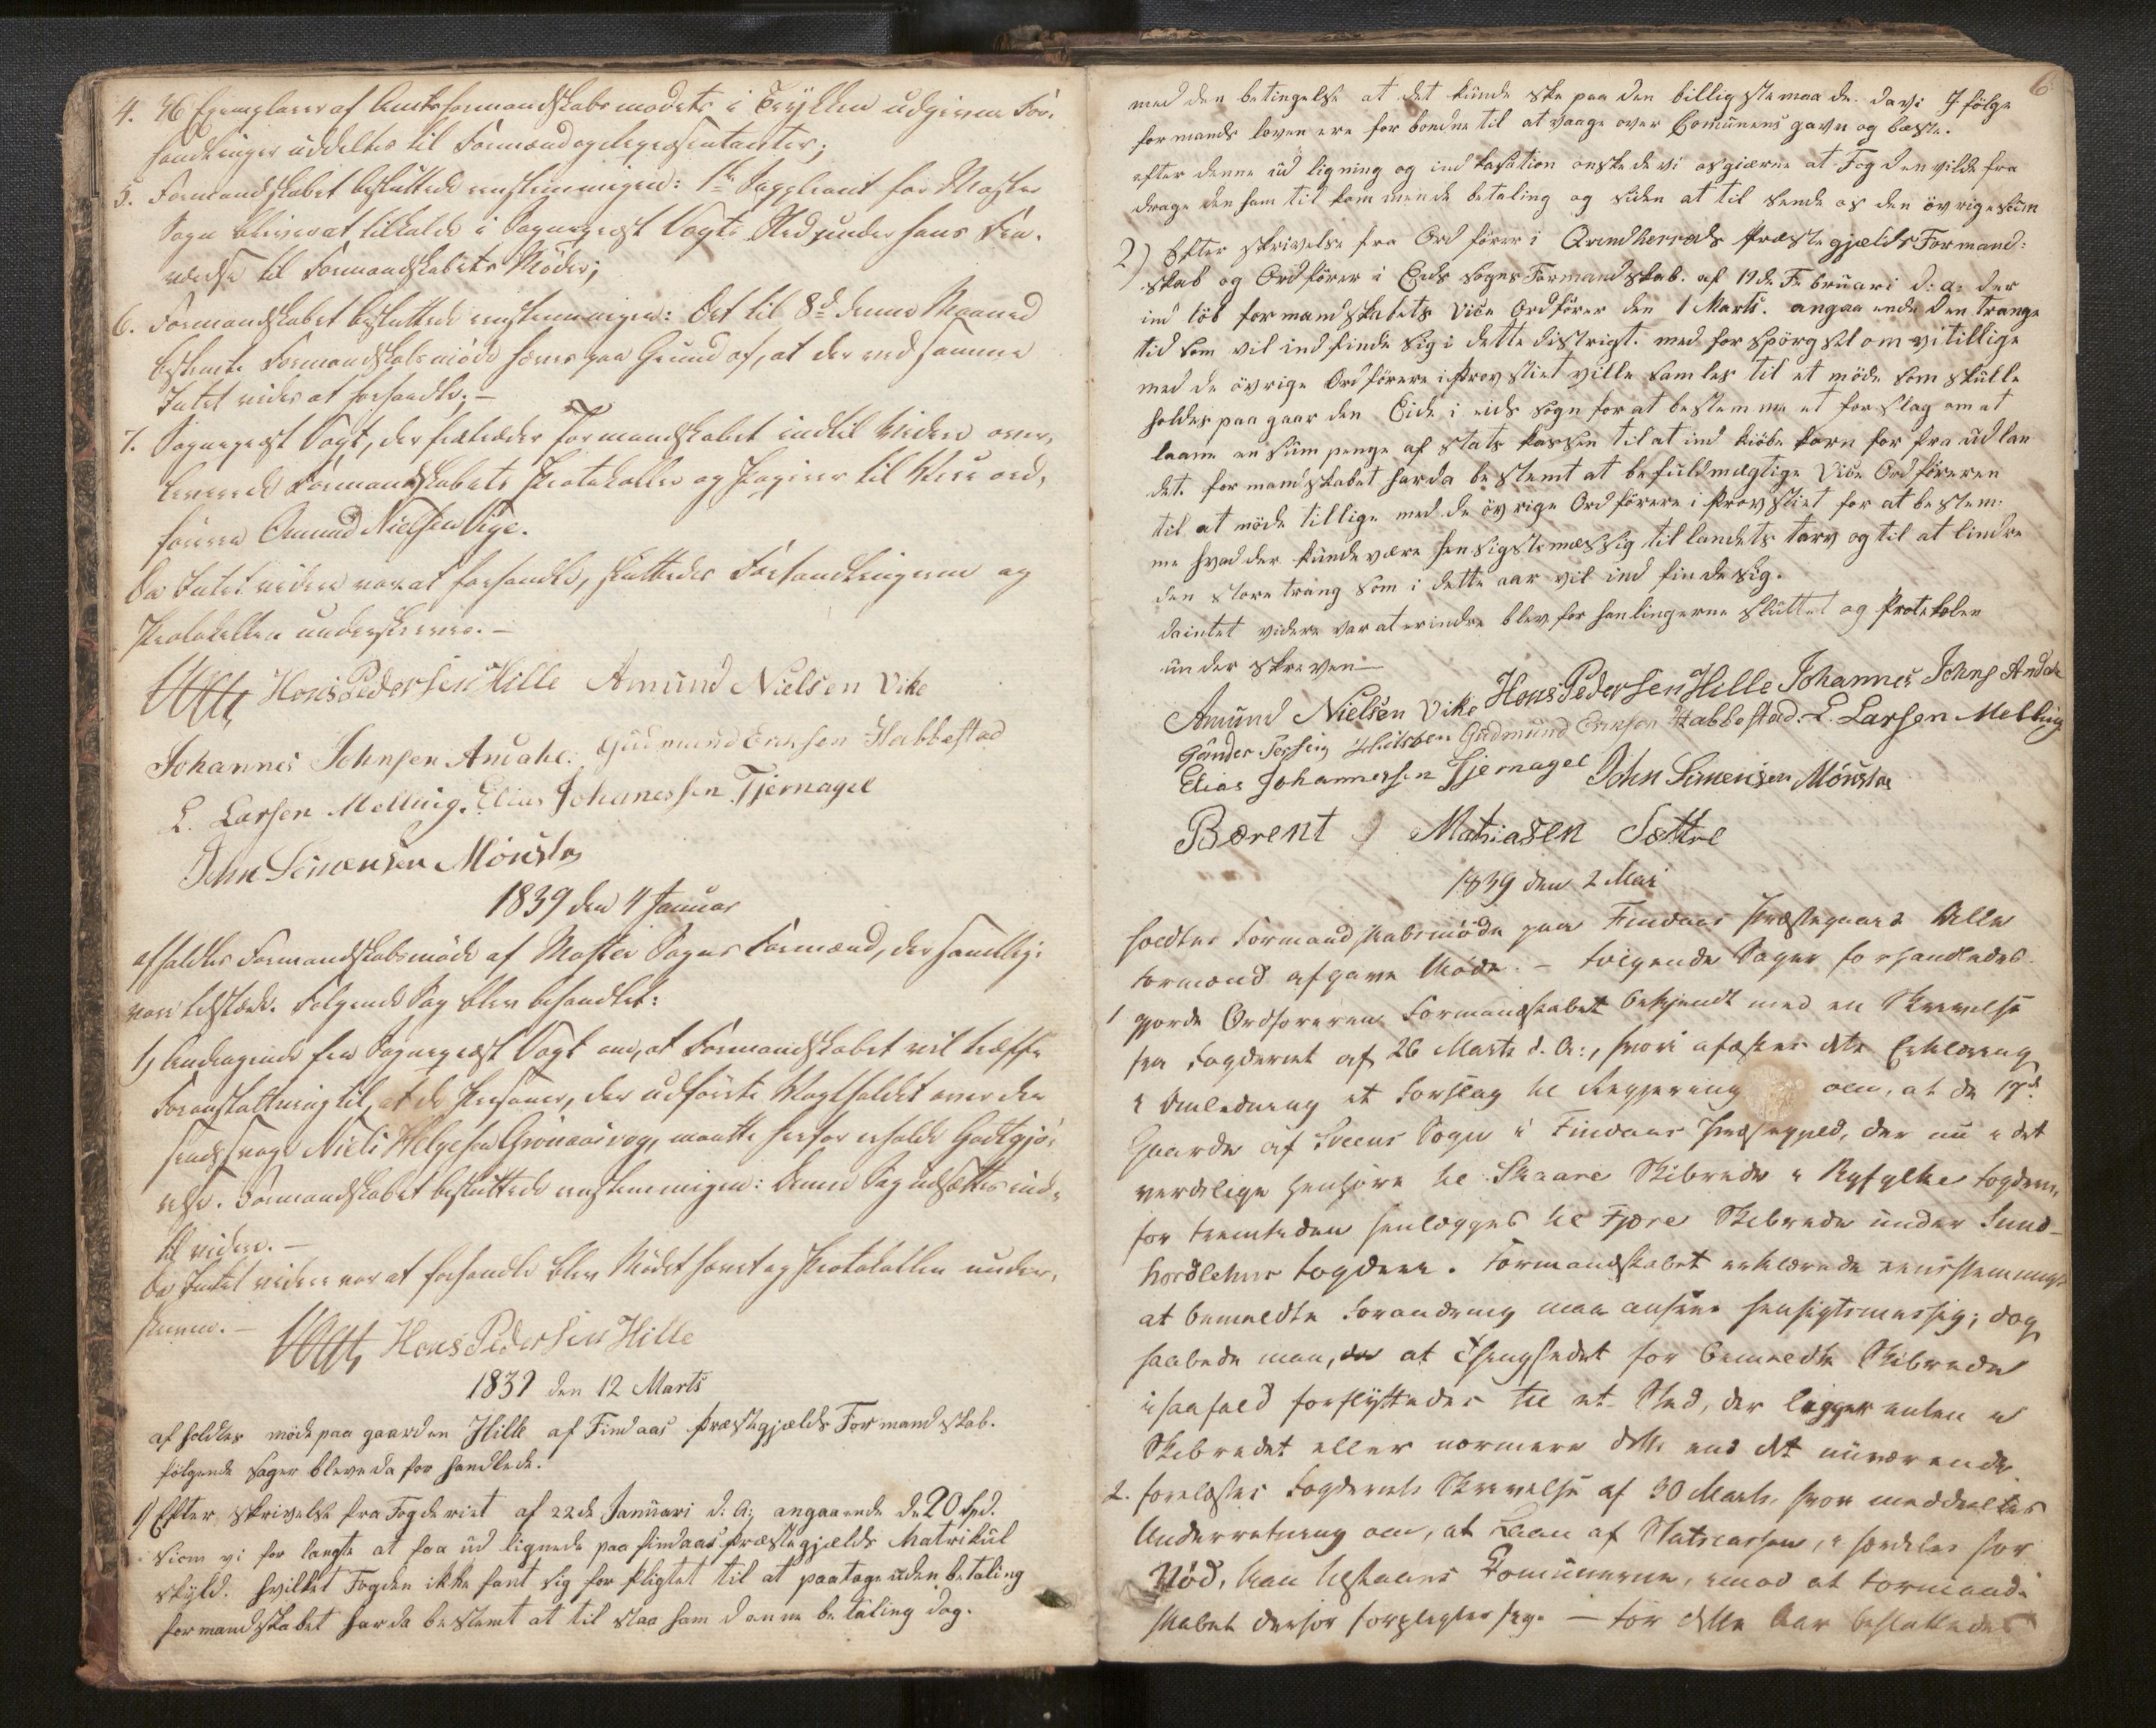 4. 46 Exemplarer af Amtsformandskabsmødets i Trykken udgivne For-
handlinger uddeltes til Formænd og Repræsentanter;
5. Formandskabet besluttede enstemmigen: 1ste Suppleant for Moster
Sogn bliver at tilkalde i Sognepræst Vogts Sted under hans Fra-
værelse til Formandskabets Møder;
6. Formandskabet besluttede enstemmigen: Det til 8de denne Maaned
bestemte Formandskabsmøde hæves paa Grund af, at der ved samme
Intet vides at forhandle; –
7. Sognepræst Vogt, der fratræder Formandskabet indtil Videre over-
leverede Formandskabets Protokoller og Papirer til Vice ord-
føreren Amund Nielsen Vige.
Da Intet videre var at forhandle, sluttedes Forhandlingerne og
Protokollen underskreves. –
Vogt Hans Pedersen Hille Amund Nielsen Vike
Johannes Johnsen Andahl. Gudmund Eriksen Habbestad
L. Larsen Melling. Elias Johanessen Tjernagel
John Simensen Mønster
1839 den 4 Januar
afholdtes Formandskabsmøde af Moster Sogns Formænd, der samtlige
vare tilstæde. Følgende Sag blev behandlet:
1) Andragende fra Sognepræst Vogt om, at Formandskabet vil træffe
Foranstaltning til, at de Personer, der udførte Vagtholdet over den
sindssvage Niels Helgesen Grønaasvog, maatte herfor erholde Godtgjø-
relse. Formandskabet besluttede enstemmigen: denne Sag udsættes ind-
til videre. –
Da Intet videre var at forhandle blev Mødet hævet og Protokollen under-
skreven. –
Vogt Hans Pedersen Hille
1839 den 12 Marts
af holdtes møde paa gaarden Hille af Findaas Præstegjælds Formandskab.
følgende sager bleve da for handlede.
1) Efter skrivelse fra Fogderiet af 22de Januari d: A: angaaende de 20 spd.
som vi for langte at faa ud lignede paa findaas Præstegjælds Matrikul
skyld. hvilket Fogden ikke fant sig for pligtet til at paatage uden betaling
formandskabet har da bestemt at til staa ham denne betaling dog.
6
med den betingelse at det kunde ske paa den billigste maade. da vi I følge
formands loven ere for bondne til at vaage over Comunens gavn og bæste.
efter denne ud ligning og ind kasation ønskede vi ogsaa gierne at Fogden vilde fra
drage den ham til kommende betaling og siden at til sende os den øvrige sum
2) Efter skrivelse fra Ord fører i Qvindherreds Præstegjælds Formand:
skab og Ordfører i Eids Sogns Formandskab. af 19de Februari d: a: der
ind løb formandskabets Vice Ordfører den 1 Marts. angaaende den trange
tid som vil indfinde sig i dette distrigt. med forspørgsel om vi tillige
med de øvrige Ordførere i Provstiet ville samles til et møde som skulle
holdes paa gaarden Eide i eids sogn for at bestemme et forslag om at
laane en sum penge af stats kassen til at ind kiøbe korn for fra udlan
det. formandskabet har da bestemt at befuldmægtige Vice Ordføreren
til at møde tillige med de øvrige Ordførere i Provstiet for at bestem-
me hvad der kunde være hensigtsmæssig til landets tarv og til at lindre
den store trang som i dette aar vil ind finde sig.
da intet videre var at erindre blev for hanlingerne sluttet og Protokolen
under skreven –
Amund Nielsen Vike Hans Pedersen Hille Johannes Johns Andahl
Gudmund Eriksen Habbestad. L. Larsen Melling
Elias Johannessen Tjernagel John Simensen Mønster
Bærent Mathiasen Sættre
1839 den 2 Mai
holdtes Formandskabsmøde paa Findaas Præstegaard Alle
Formænd afgave Møde. – Følgende Sager forhandledes.
1 gjorde Ordføreren Formandskabet bekjendt med en Skrivelse
fra Fogderiet af 26 Marts d. A:, hvori afæskes dets Erklæring
i Anledning et Forslag til Regjering om, at de 17de
Gaarde af Sveens Sogn i Findaas Præstegjeld, der nu i det
verdslige henhøre til Skaare Skibrede i Ryfylke Fogderie,
for Fremtiden henlægges til Fjære Skibrede under Sund-
hordlehns Fogderie. Formandskabet erklærede eensstemmigt
at bemeldte Forandring maa ansees hensigtsmæssig; dog
haabede man, at Thingstedet for bemeldte Skibrede
i saafald forflyttedes til et Sted, der ligger enten i
Skibredet eller nærmere dette end det nuværende.
2. forelæstes Fogderiets Skrivelse af 30 Marts, hvori meddeeltes
Underretning om, at Laan af Statscassen, i Fordeles for
Nød, kan tilstaaes Communerne, imod at Formand-
skabet derfor forpligter sig. – For dette Aar besluttedes